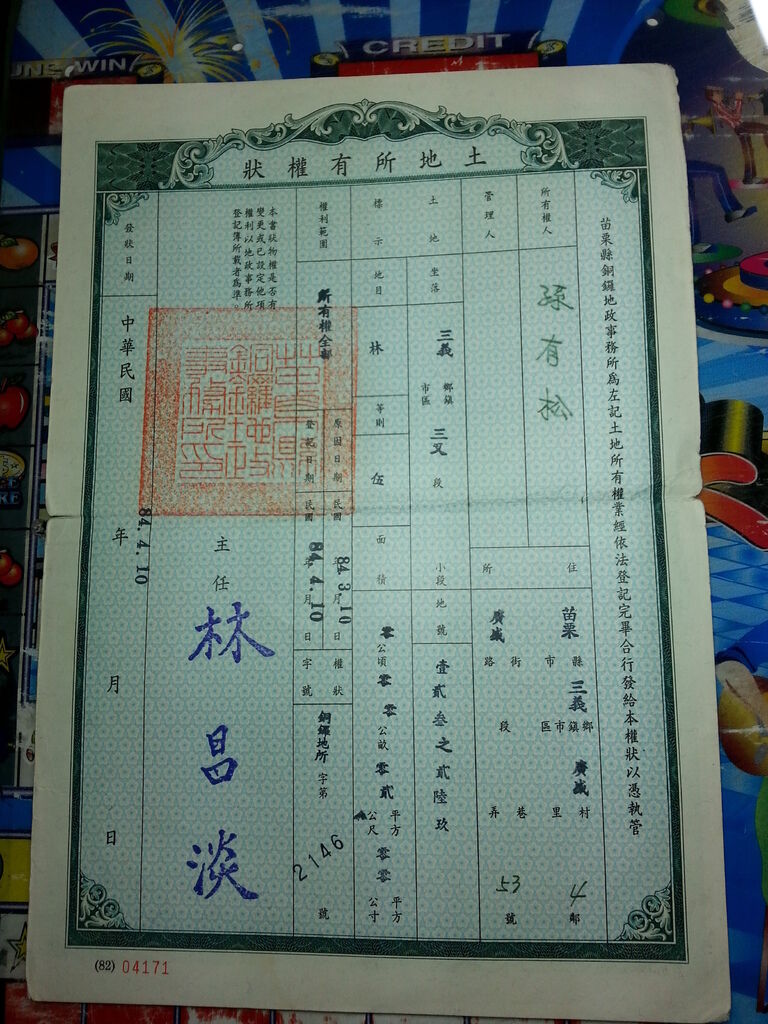 UNE WIN
CREDIT
土地所有權狀
苗栗縣銅鑼地政事務所為左記土地所有權業經依法登記完畢合行發給本權狀以憑執管
所有權人
有
管理人
住所
苗栗縣市三義鄉鎮市區廣盛村里4鄰
廣盛路街段巷弄53號
土地標示
坐落
三義鄉鎮市區三叉段小段
地號
壹貳叁之貳陸玖
地目
林
等則
伍
面積
零公頃零零公畝零貳平方公尺零零平方公寸
權利範圍
所有權全部
原因日期
民國84.3.10年月日
登記日期
民國84.4.10年月日
權狀字號
銅鑼地所字第2146號
本書狀物權是否有
變更或已設定他項
權利以地政事務所
登記簿所載者為準。
苗栗縣
銅鑼地政
事務所印
主任林昌淡
發狀日期
中華民國84.4.10年月日
(82) 04171